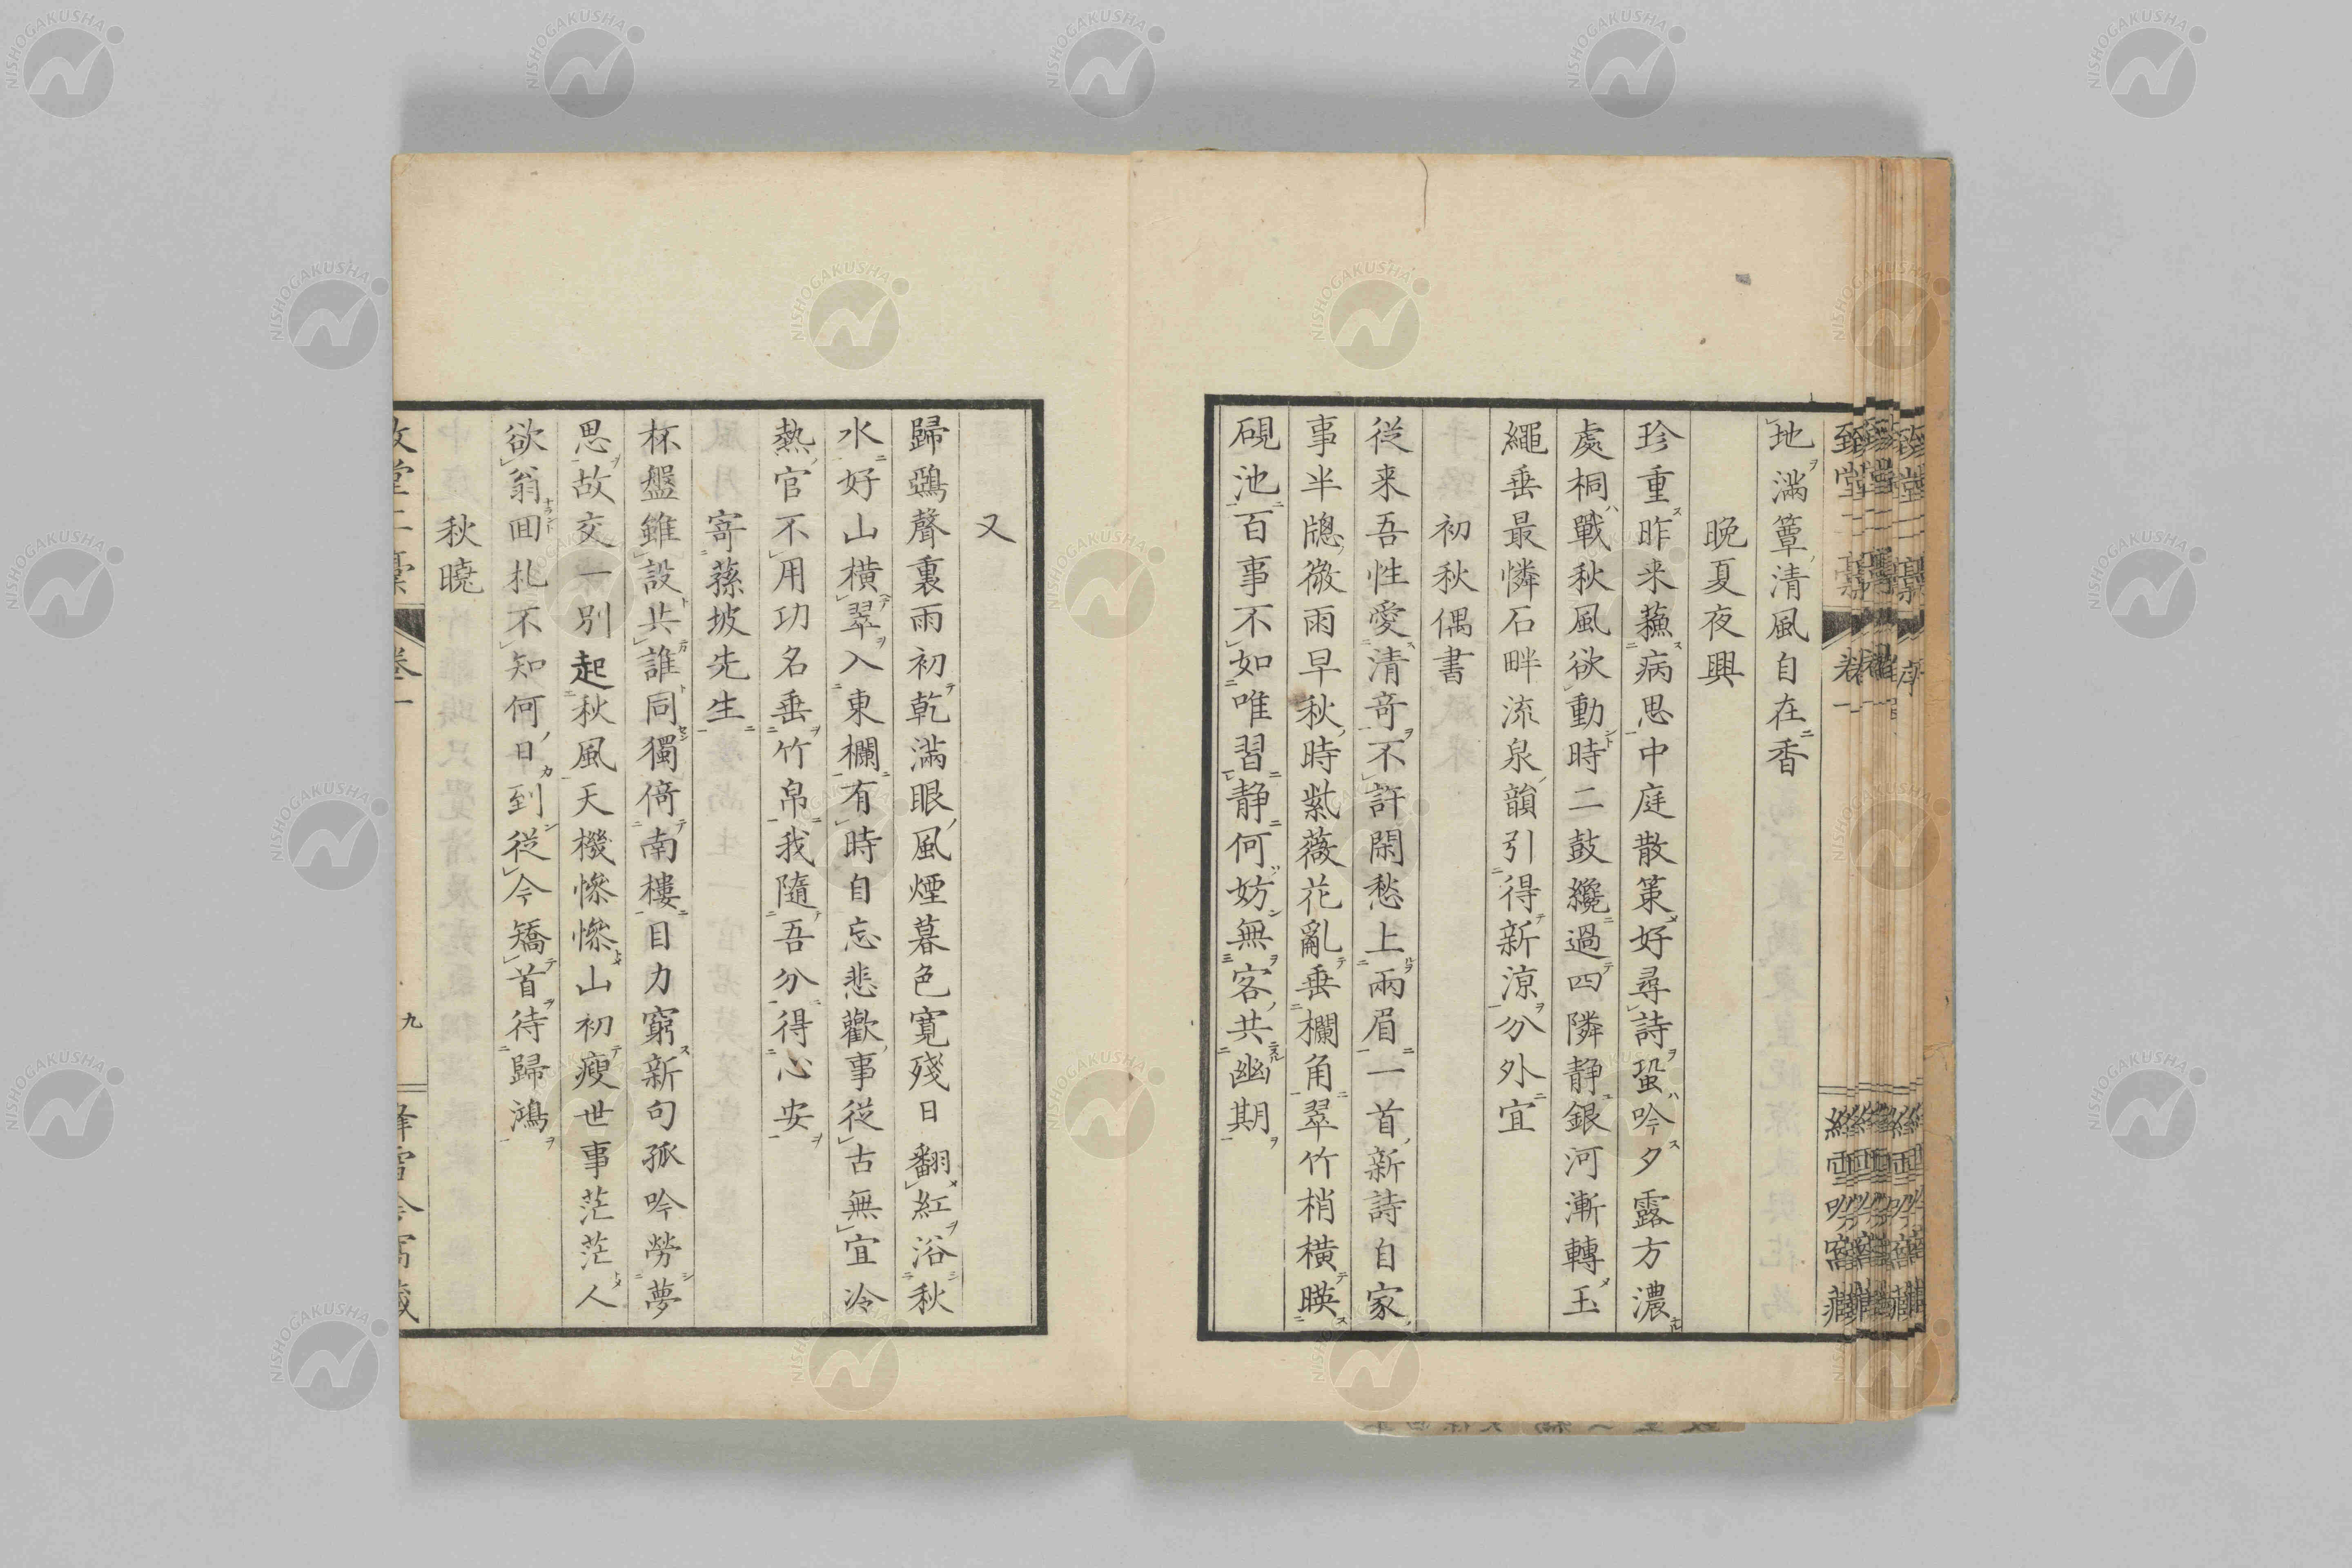 地滿簟清風自在香
晚夏夜興
珍重昨来蘓病思中庭散策好尋詩蛩吟夕露方濃
處桐戰秋風欲動時二鼓纔過四隣静銀河漸轉玉
繩垂最憐石畔流泉韻引得新涼分外宜
初秋偶書
従来吾性愛清竒不許閑愁上兩眉一首新詩自家
事半牕微雨早秋時紫薇花亂垂欄角翠竹梢横暎
硯池百事不如唯習静何妨無客共幽期
又
歸鵶聲裏雨初乾滿眼風煙暮色寛殘日翻紅浴秋
水好山横翠入東欄有時自忘悲歡事従古無宜冷
熱官不用功名垂竹帛我隨吾分得心安
寄蓀坡先生
杯盤雖設共誰同獨倚南樓目力窮新句孤吟勞夢
思故交一別起秋風天機慘慘山初瘦世事茫茫人
欲翁囬札不知何日到従今矯首待歸鴻
秋曉
九
NISHOGAKUSHA